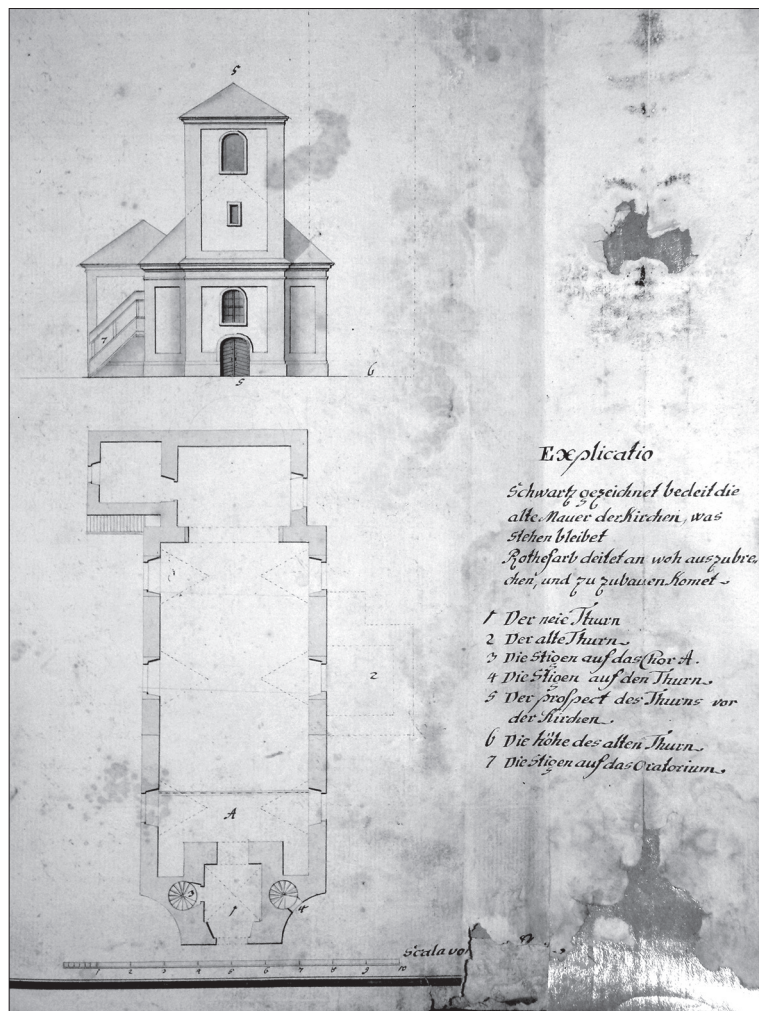 5
7
5
6
Explicatio
Schwartz gezeichnet bedeit die
alte Mauer der Kirchen, was
stehen bleibet
Rothefarb deitet an woh auszubre
chen, und zu zubauen Komet
1 Der neie Thurn
2 Der alte Thurn
3 Die Stigen auf das Chor A.
4 Die Stigen auf den Thurn
5 Der prospect des Thurns vor
der Kirchen
6 Die höhe des alten Thurn
7 Die Stigen auf das Oratorium
3
2
A
3
4
1
Scala vo
1 2 3 4 5 6 7 8 9 10